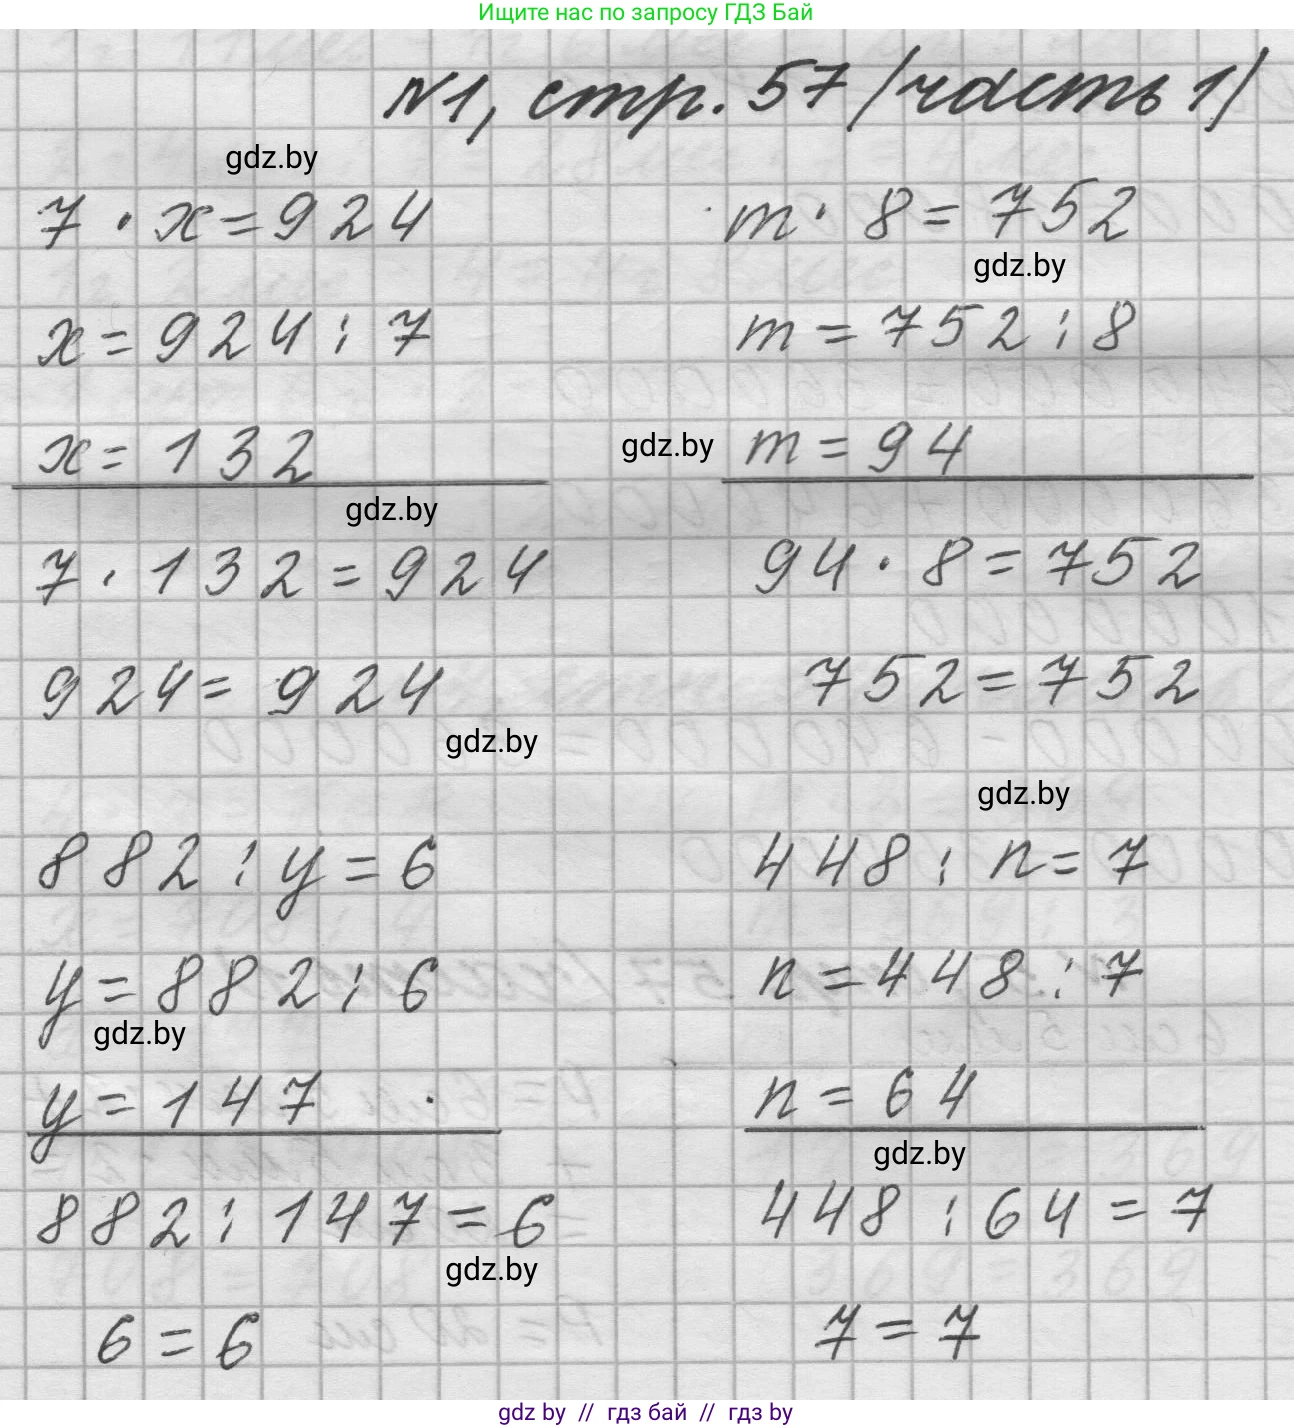 Ищите нас по запросу ГДЗ Бай
№1, стр. 57 /часть 1/
gdz.by
7 · x = 924
m · 8 = 752
gdz.by
x = 924 : 7
m = 752 : 8
x = 132
gdz.by
m = 94
gdz.by
7 · 132 = 924
94 · 8 = 752
924 = 924
752 = 752
gdz.by
gdz.by
882 : y = 6
448 : n = 7
y = 882 : 6
n = 448 : 7
gdz.by
y = 147
n = 64
gdz.by
882 : 147 = 6
448 : 64 = 7
gdz.by
6 = 6
7 = 7
gdz by // гдз бай // гдз by